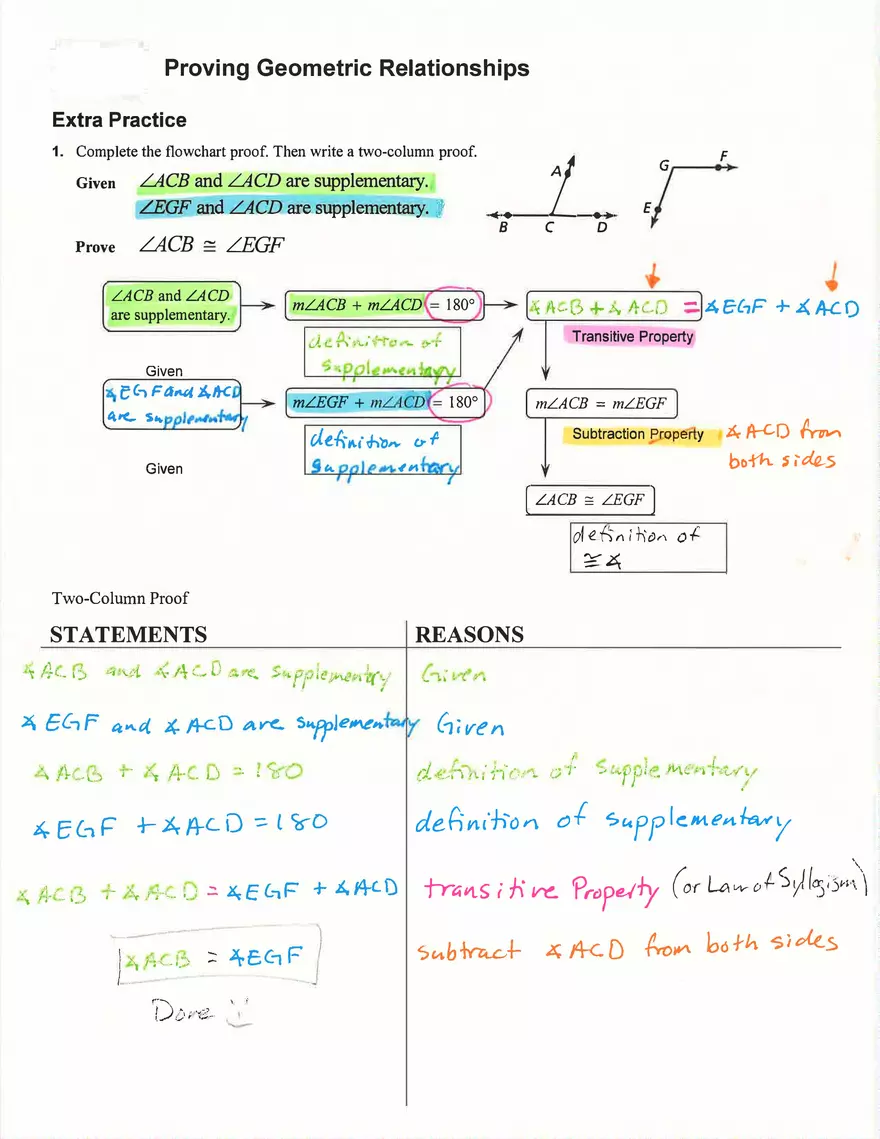 Proving Geometric Relationships
Extra Practice
1. Complete the flowchart proof. Then write a two-column proof.
Given ∠ACB and ∠ACD are supplementary.
∠EGF and ∠ACD are supplementary.
Prove ∠ACB ≅ ∠EGF
A
B C D
G F
E
∠ACB and ∠ACD
are supplementary.
Given
m∠ACB + m∠ACD = 180°
definition of
supplementary
∡ACB + ∡ACD = ∡EGF + ∡ACD
Transitive Property
∡EGF and ∡ACD
are supplementary
Given
m∠EGF + m∠ACD = 180°
definition of
supplementary
m∠ACB = m∠EGF
Subtraction Property ∡ACD from
both sides
∠ACB ≅ ∠EGF
definition of
≅ ∡
Two-Column Proof
STATEMENTS REASONS
∡ACB and ∡ACD are supplementry Given
∡EGF and ∡ACD are supplementary Given
∡ACB + ∡ACD = 180 definition of supplementary
∡EGF + ∡ACD = 180 definition of supplementary
∡ACB + ∡ACD = ∡EGF + ∡ACD transitive Property (or Law of Syllogism)
∡ACB = ∡EGF subtract ∡ACD from both sides
Done